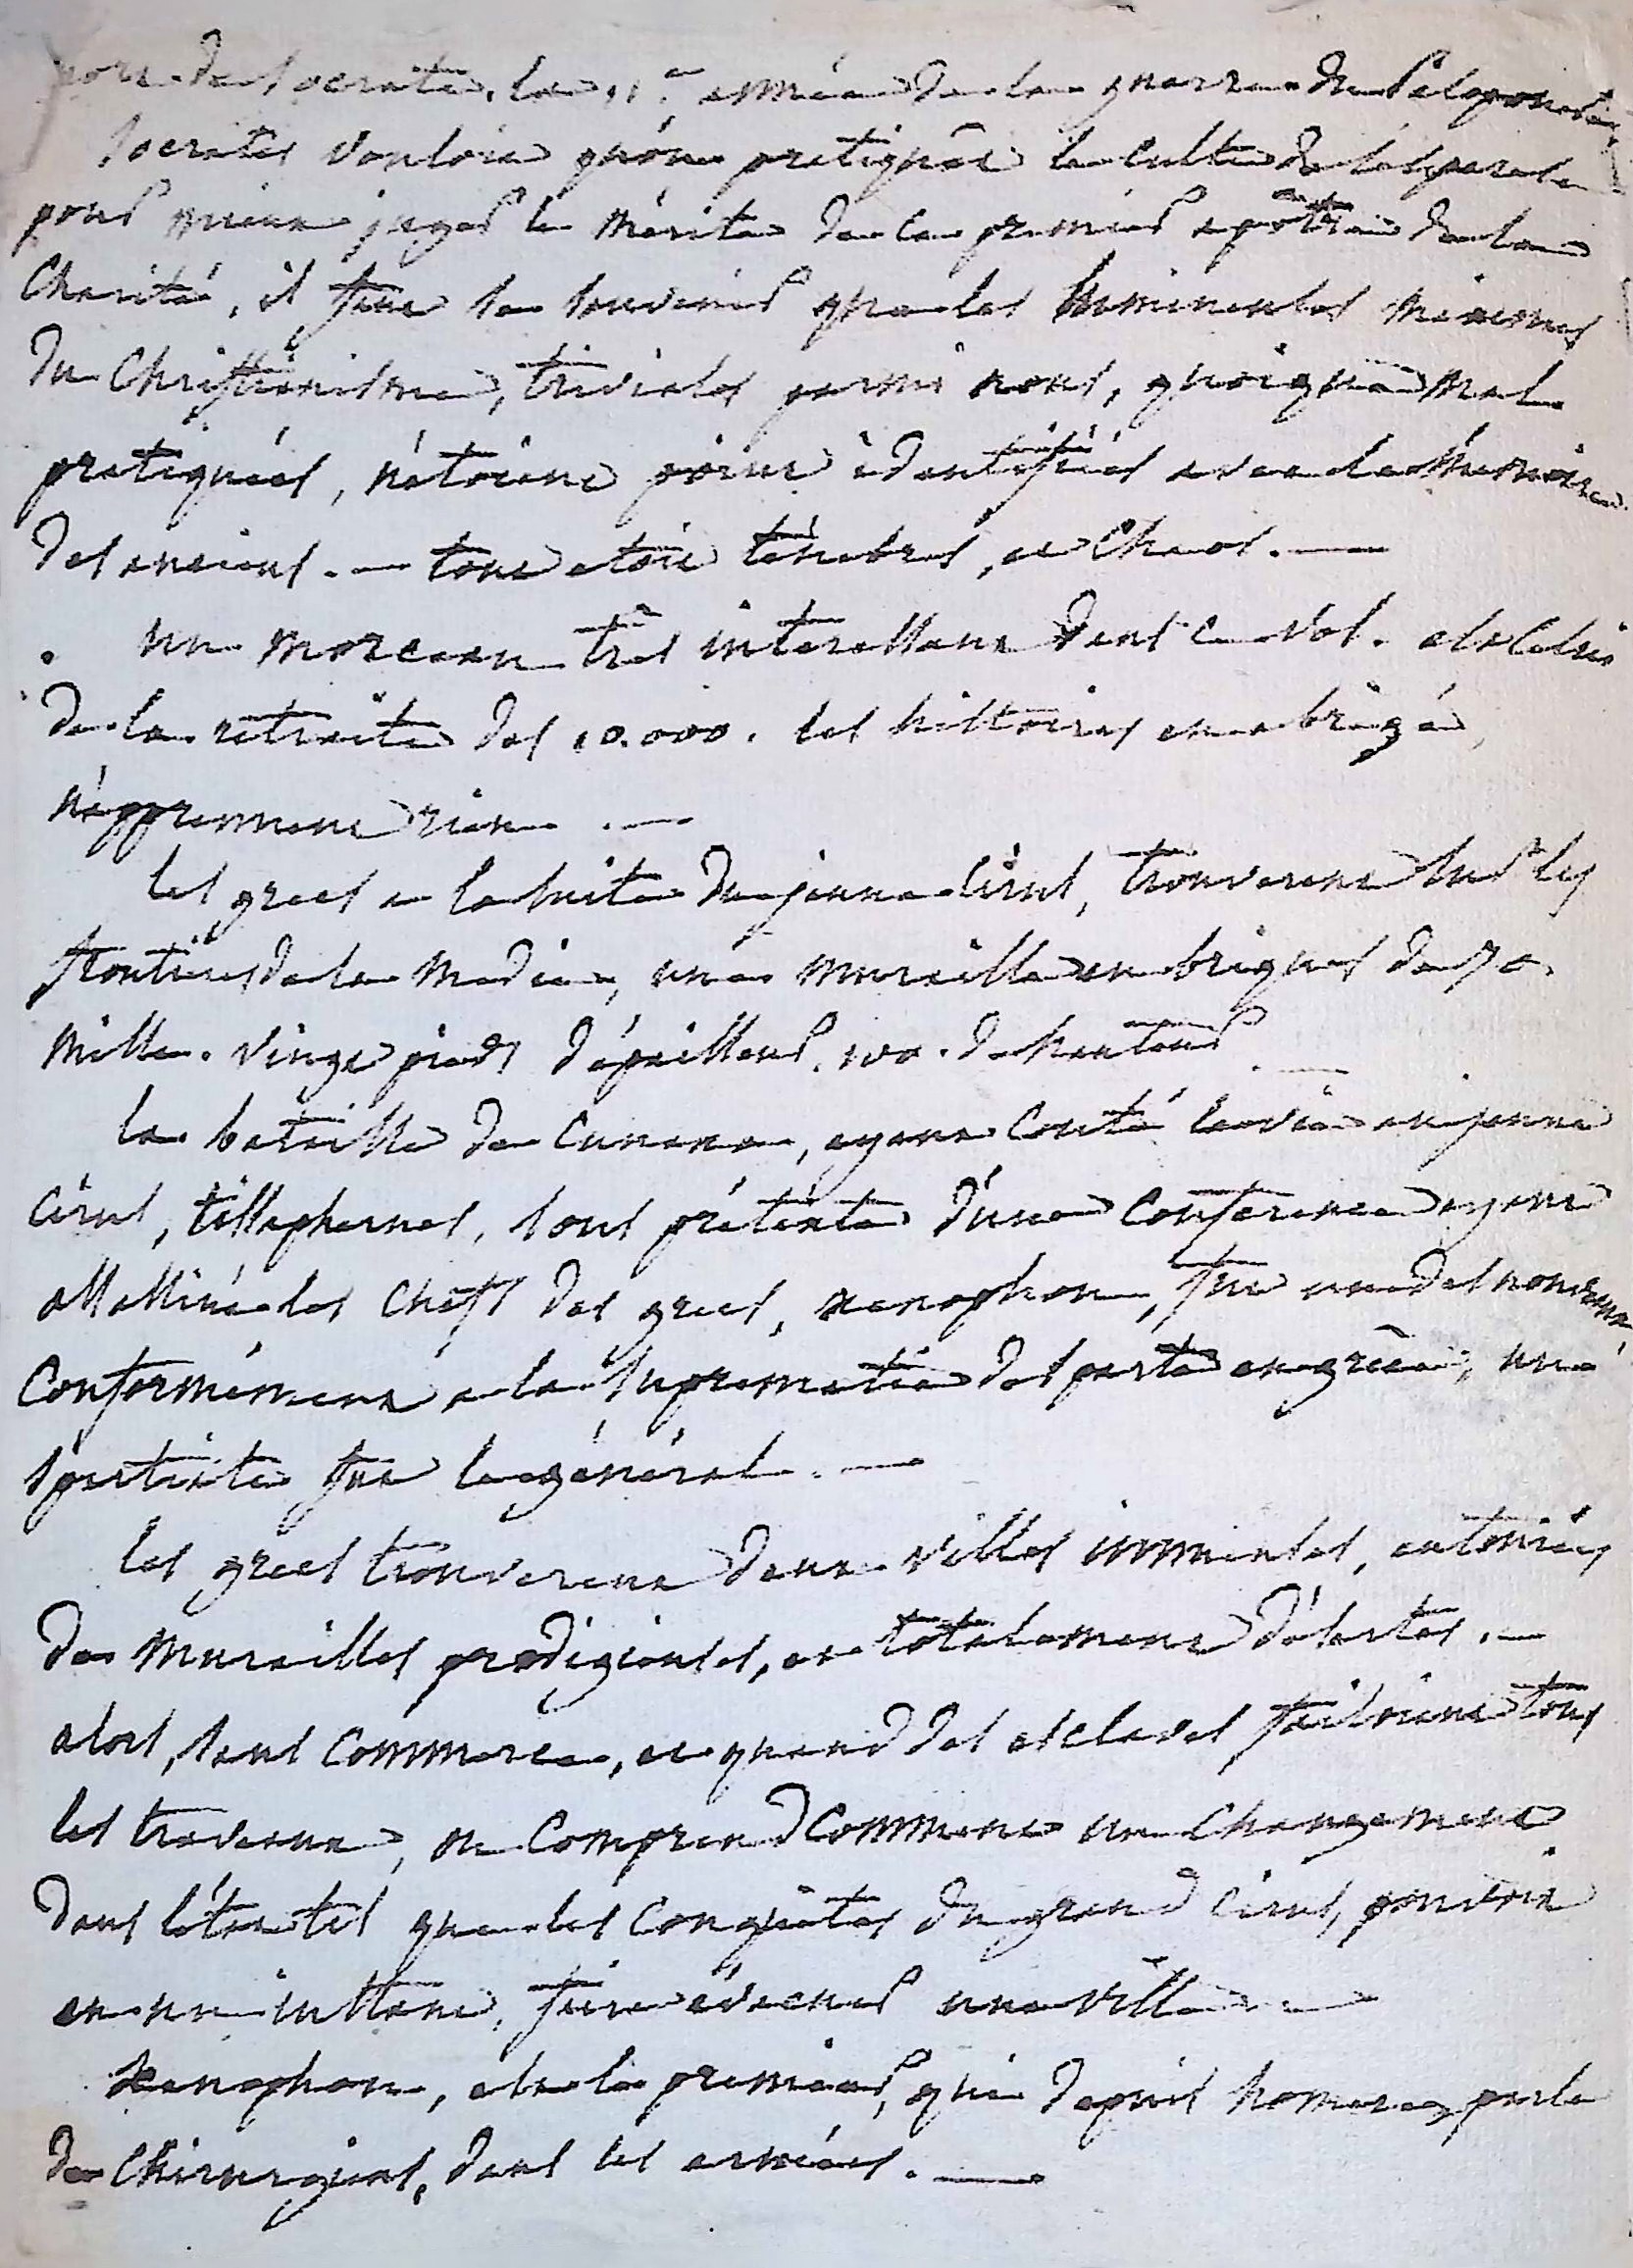 mort de Socrate, la 11.e année de la guerre du Peloponese,
Socrates vouloit qu'on pratiquât le culte de
pour mieux juger le mérite de ce premier apôtre de la
charité, il faut se souvenir que les lumineuses maximes
du Christianisme, triviales parmi nous, quoique mal
pratiquées, n'étoient point identifiées avec la mémoire
des anciens. — tout etoit ténebres, et Chaos. —
un morceau très interessant dans ce vol. est celui
de la retraite des 10.000. les histoires en abrégé,
n'apprennent rien. —
les grecs a la suite du jeune Cirus, trouverent sur les
frontieres de la Medie, une muraille en briques de 70.
mille. vingt pieds d'épaisseur. 100. de hauteur. —
la bataille de Cunaxa, ayant couté la vie au jeune
Cirus, tissaphernes, sous prétexte d'une conference ayant
assassiné les chefs des grecs, xenophon, fut un des nouveaux
conformément a la suprematie de sparte en grèce, un
spartiate fut le général. —
les grecs trouverent deux villes immenses, entourées
de murailles prodigieuses, et totalement désertes. —
alors, sans commerce, et quand des esclaves faisoient tous
les travaux, on comprend comment un changement
dans l'état tel que les conquêtes du grand Cirus, pouvoit
en un instant, faire évacuer une ville. —
Xenophon, est le premier, qui depuis homere, parle
de chirurgiens, dans les armées. —